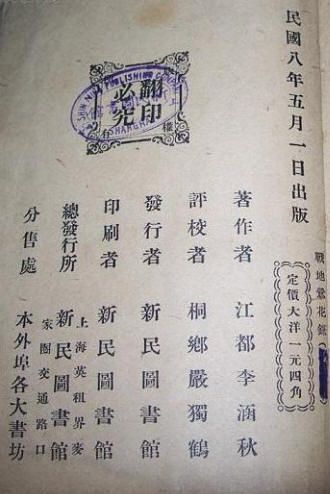 民國八年五月一日出版
戰地鶯花錄
定價大洋一元四角
版權
翻印
必究
PUBLISHING
SHANGHAI
著作者 江都李涵秋
評校者 桐鄉嚴獨鶴
發行者 新民圖書館
印刷者 新民圖書館
總發行所 上海英租界麥家圈交通路口 新民圖書館
分售處 本外埠各大書坊